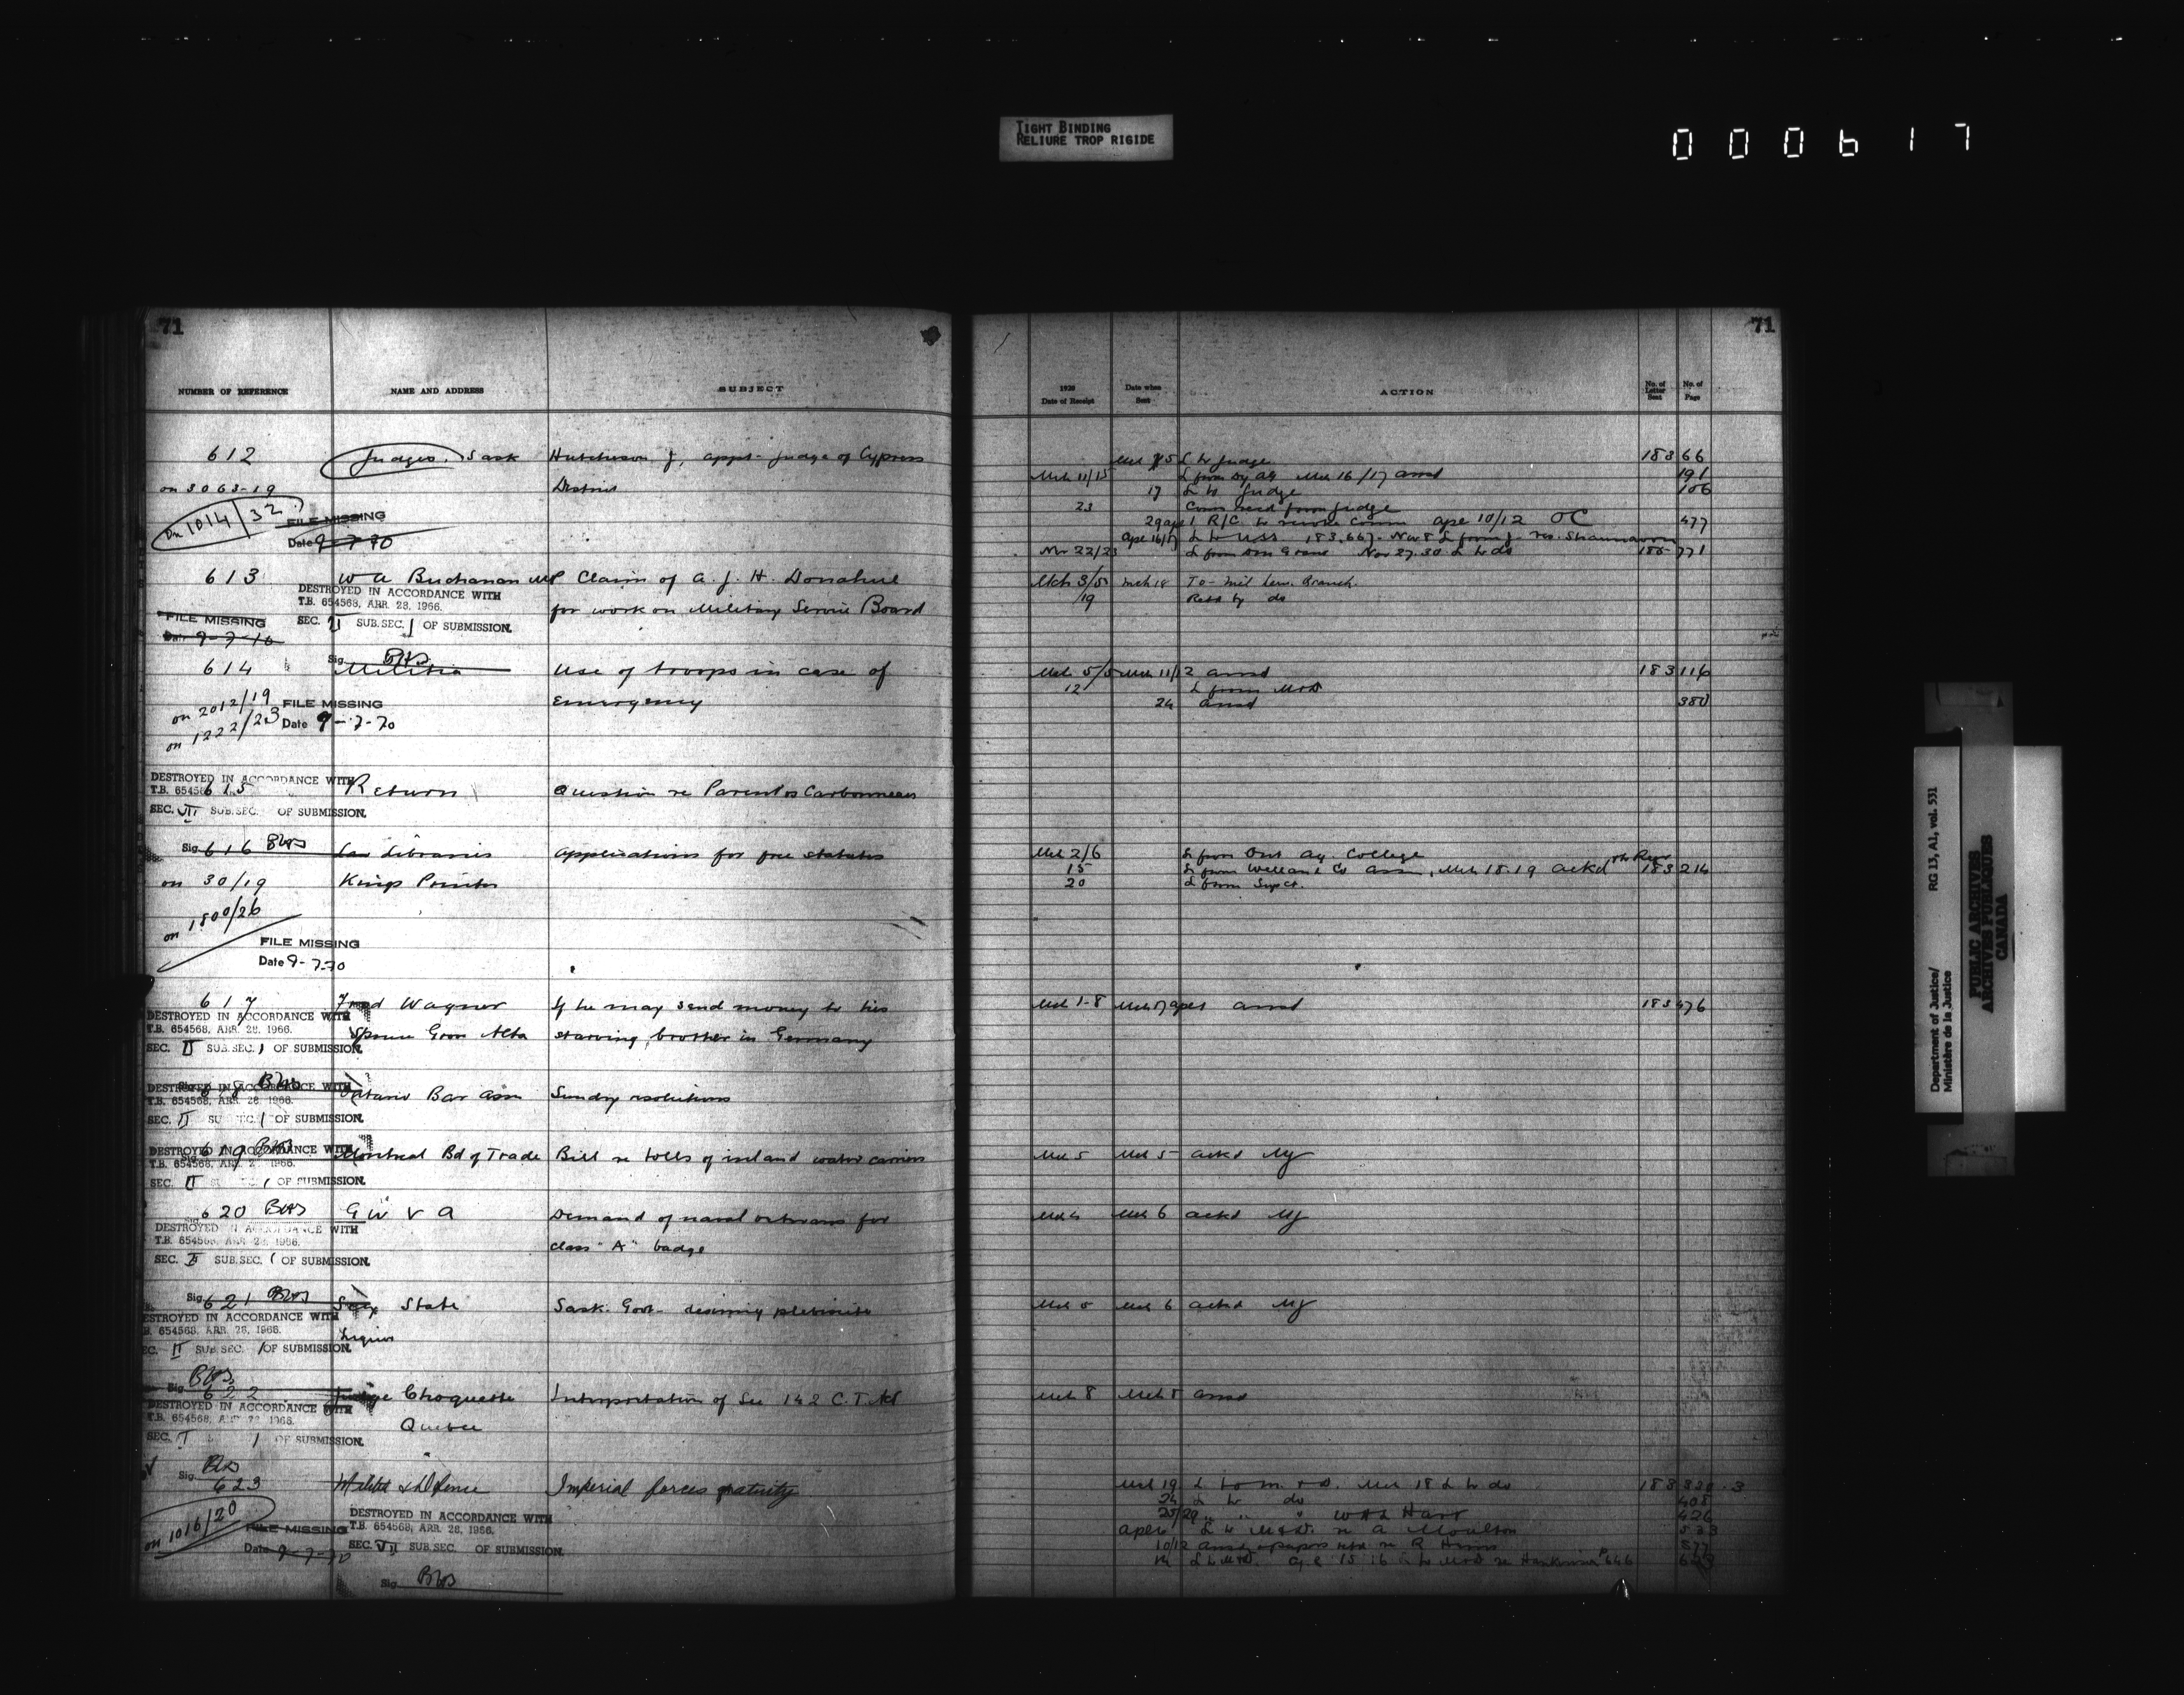 TIGHT BINDING
RELIURE TROP RIGIDE
000617
71
NUMBER OF REFERENCE NAME AND ADDRESS SUBJECT
612 Judges. Sask Hutcheson J, appt- Judge of Cypress
on 3063-19 District
On 1014/32
FILE MISSING
Date 9-7-70
613 W A Buchanan MP Claim of A. J. H. Donahue
DESTROYED IN ACCORDANCE WITH
T.B. 654568, ARR. 28, 1966.
for work on Military Service Board
FILE MISSING SEC. II SUB.SEC. 1 OF SUBMISSION.
Date 9-7-70
Sig.
614 Militia Use of troops in case of
on 2012/19 FILE MISSING Emergency
on 1222/23 Date 9-7-70
DESTROYED IN ACCORDANCE WITH
T.B. 654568
615 Return Question re Parent os Carbonneau
SEC. VII SUB.SEC. OF SUBMISSION.
Sig.
616 Law Libraries Applications for free statutes
on 30/19 Kings Printer
on 1800/26
FILE MISSING
Date 9-7-70
617 Fred Wagner If he may send money to his
DESTROYED IN ACCORDANCE WITH
T.B. 654568, ARR. 28, 1966.
Spruce Grove Alta starving brother in Germany
SEC. II SUB.SEC. 1 OF SUBMISSION.
Sig.
DESTROYED IN ACCORDANCE WITH
T.B. 654568, ARR. 28, 1966.
618 Ontario Bar Assn Sundry resolutions
SEC. II 1 OF SUBMISSION.
DESTROYED IN ACCORDANCE WITH
619 Montreal Bd of Trade Bill re tolls of inland water carriers
T.B. 654568, 1966.
SEC. II 1 OF SUBMISSION.
620 G W V A Demand of naval veterans for
DESTROYED IN ACCORDANCE WITH
T.B. 654568, ARR. 28, 1966.
class "A" badge
SEC. II SUB.SEC. 1 OF SUBMISSION.
Sig.
621 Secy State Sask. Govt- desiring plebiscite
DESTROYED IN ACCORDANCE WITH
T.B. 654568, ARR. 28, 1966.
Liquor
SEC. II SUB.SEC. 1 OF SUBMISSION.
Sig.
622 Judge Choquette Interpretation of Sec 142 C. T. Act
DESTROYED IN ACCORDANCE WITH
Quebec
SEC. 1 OF SUBMISSION.
Sig.
623 Militia & Defence Imperial forces gratuity
on 1016/20
DESTROYED IN ACCORDANCE WITH
FILE MISSING T.B. 654568, ARR. 28, 1966.
Date 9-7-70 SEC. VII SUB.SEC. OF SUBMISSION.
Sig.
71
1920
Date of Receipt
Date when
Sent
ACTION
No. of
Letter
Sent
No. of
Page
L to Judge 183 66
Mch 11/15 L from Dy AG Mch 16/17 ansd 191
17 L to Judge 106
23 Comm recd from Judge
29 Ape 1 R/C to revoke Comm Ape 10/12 OC 477
Ape 16/17 L to USS 183.667. Nov 8 L from J. re. Shaunavon
Nov 22/23 Nov 27.30 L to do 771
Mch 3/5 Mch 18 To Mil Serv. Branch.
/19 Retd by do
Mch 5/5 Mch 11/12 ansd 183 116
12 L from M&D
24 ansd 380
Mch 2/6 L from Ont Ag College
15 L from Welland Co Assn, Mch 18.19 ackd 183 214
20 L from Sup Ct.
Mch 1-8 ansd 183 476
Mch 5 Mch 5 ackd MJ
Mch 6 ackd MJ
Mch 6 ackd MJ
Mch 8 ansd
Mch 19 L to M. & D. Mch 18 L to do 183 320-3
24 L to do 408
25/29 " " " W H L Hart 426
Ape 6 L to M&D. re A Moulton 533
10/12 ansd & papers retd re R 577
14 L to M&D. Ape 15 16 L to M&D re P 646
Department of Justice/
Ministère de la Justice
RG 13, A1, vol. 531
PUBLIC ARCHIVES
ARCHIVES PUBLIQUES
CANADA